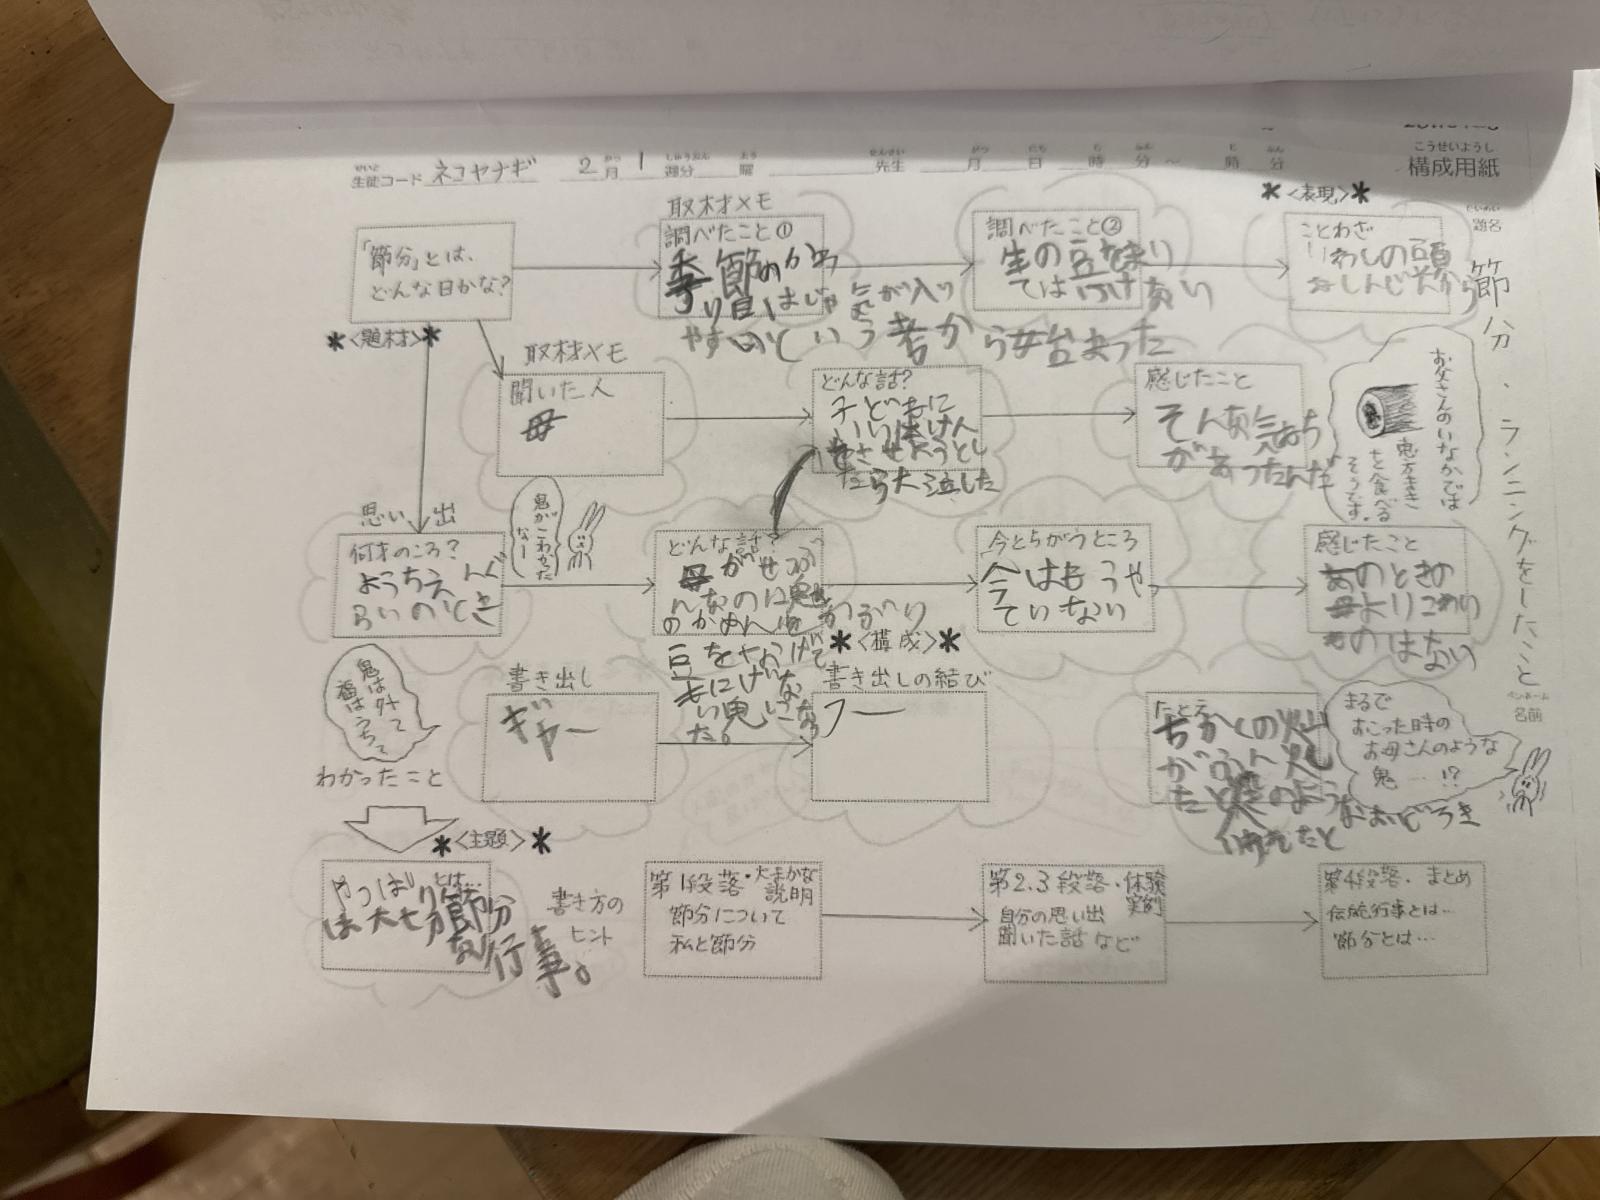 構成用紙
こうせいようし
生徒コード ネコヤナギ 2月 1週分 曜 先生 月 日 時 分 ～ 時 分
題名
節分、ランニングをしたこと
名前
＊<表現>＊
取材メモ
「節分」とは、
どんな日かな?
＊<題材>＊
調べたこと①
季節のかわ
り目はじゃ気が入り
やすいのという考えか
ら始まった
調べたこと②
生の豆なまり
ては行けない
ことわざ
いわしの頭
もしんじんから
取材メモ
聞いた人
母
どんな話?
子どもに
いい体けん
をさせようとし
たら大泣した
感じたこと
そんな気もち
があったんだ
お父さんのいなかでは
恵方まき
を食べる
そうです。
思い出
何才のころ?
ようちえんぐ
らいのとき
鬼が
こわかった
なー
どんな話?
母がせつぶ
んなのに鬼
のかめんをかぶり
豆をなげて
もにげいな
い鬼になっ
た。
今とちがうところ
今はもうや
ていない
感じたこと
あのときの
母よりこわい
ものはない
＊<構成>＊
書き出し
ぎゃー
書き出しの結び
フー
たとえ
ちかくの火山
がふん火し
たときのようなおどろき
まるで
おこった時の
お母さんのような
鬼…!?
鬼は外って
福はうちって
わかったこと
＊<主題>＊
やっぱり節分
とは…
は大せつ
な行事。
書き方の
ヒント
第1段落・大まかな
説明
節分について
私と節分
第2.3段落・体験
実例
自分の思い出
聞いた話など
第4段落・まとめ
伝統行事とは…
節分とは…